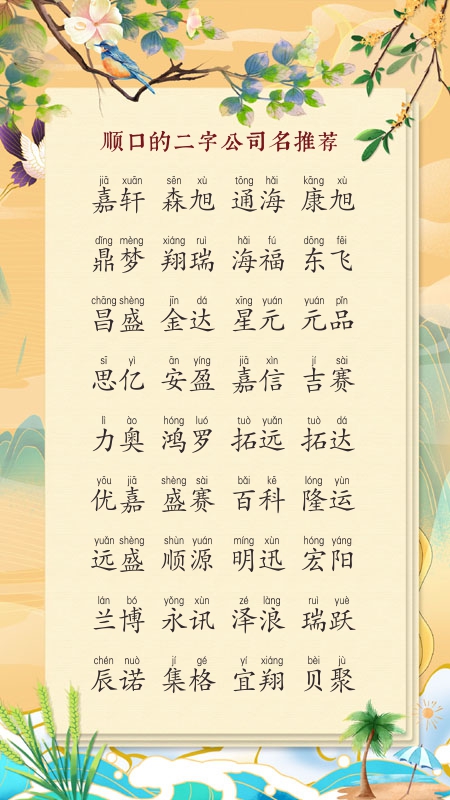 顺口的二字公司名推荐
jiā xuān sēn xù tōng hǎi kāng xù
嘉轩 森旭 通海 康旭
dǐng mèng xiáng ruì hǎi fú dōng fēi
鼎梦 翔瑞 海福 东飞
chāng shèng jīn dá xīng yuán yuán pǐn
昌盛 金达 星元 元品
sī yì ān yíng jiā xìn jí sài
思亿 安盈 嘉信 吉赛
lì ào hóng luó tuò yuǎn tuò dá
力奥 鸿罗 拓远 拓达
yōu jiā shèng sài bǎi kē lóng yùn
优嘉 盛赛 百科 隆运
yuǎn shèng shùn yuán míng xùn hóng yáng
远盛 顺源 明迅 宏阳
lán bó yǒng xùn zé làng ruì yuè
兰博 永讯 泽浪 瑞跃
chén nuò jí gé yí xiáng bèi jù
辰诺 集格 宜翔 贝聚